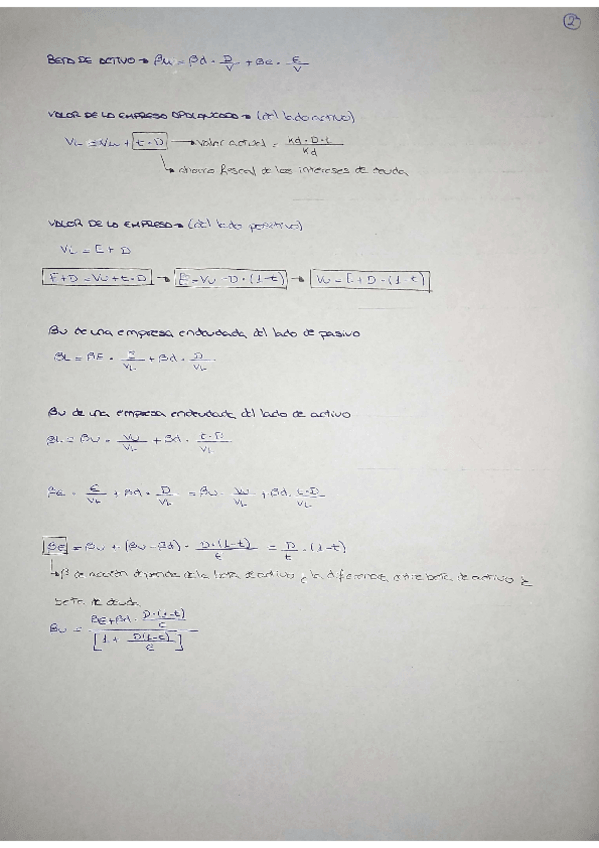 2
BETA DE ACTIVO → βu = βd · D/V + βe · E/V
VALOR DE LA EMPRESA APALANCADA → (del lado activo)
VL = Vu + t·D → valor actual = Kd·D·t / Kd
↳ ahorro fiscal de los intereses de deuda
VALOR DE LA EMPRESA → (del lado pasivo)
VL = E + D
E + D = Vu + t·D → E = Vu - D·(1-t) → Vu = E + D·(1-t)
βu de una empresa endeudada del lado de pasivo
βL = βE · E/VL + βd · D/VL
βu de una empresa endeudada del lado de activo
βL = βu · Vu/VL + βd · t·D/VL
βe · E/VL + βd · D/VL = βu · Vu/VL + βd · t·D/VL
βE = βu + (βu - βd) · D·(1-t)/t = D/t · (1-t)
↳ β de acción depende de la beta de activo y la diferencia entre beta de activo y
beta de deuda
βu = βE + βd · D·(1-t)/E / [1 + D(1-t)/E]